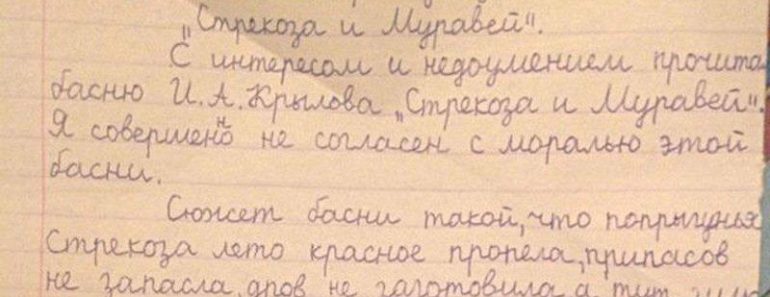 „Стрекоза и Муравей".
С интересом и недоумением прочитал
басню И.А.Крылова „Стрекоза и Муравей".
Я совершенно не согласен с моралью этой
басни.
Сюжет басни такой, что попрыгунья
Стрекоза лето красное пропела, припасов
не запасла, дров не заготовила, а тут зима